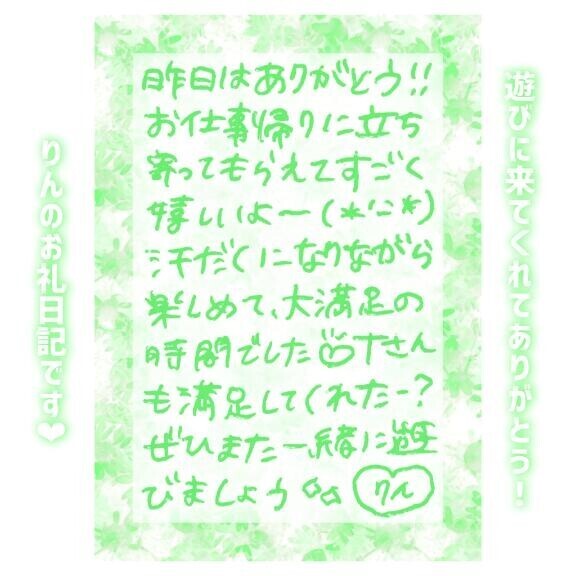 遊びに来てくれてありがとう！
昨日はありがとう!!
お仕事帰りに立ち
寄ってもらえてすごく
嬉しいよ〜(*'ﾆ*)
汗だくになりながら
楽しめて、大満足の
時間でした♡Tさん
も満足してくれたー?
ぜひまた一緒に遊
びましょう
りん
りんのお礼日記です❤